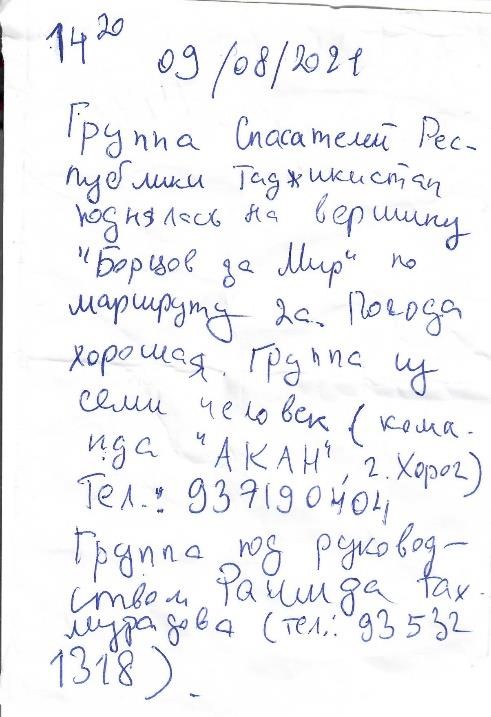 14²⁰ 09/08/2021
Группа Спасателей Рес-
публики Таджикистан
поднялась на вершину
"Борцов за Мир" по
маршруту 2а. Погода
хорошая. Группа из
семи человек (кома-
нда "АКАН", г. Хорог)
Тел.: 937190404
Группа под руковод-
ством
(тел.: 93 532
1318).